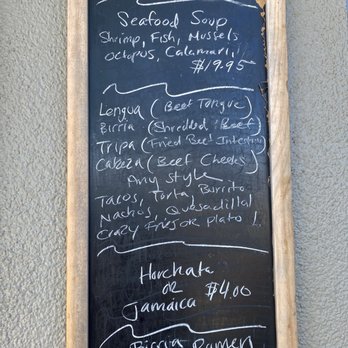 Seafood Soup
Shrimp, Fish, Mussels
Octopus, Calamari,
$19.95
Lengua (Beef Tongue)
Birria (Shredded Beef)
Tripa (Fried Beef Intestine)
Cabeza (Beef Cheeks)
Any Style
Tacos, Torta, Burrito
Nachos, Quesadilla
Crazy Fries or plato!
Horchata
or
Jamaica $4.00
Birria Ramen